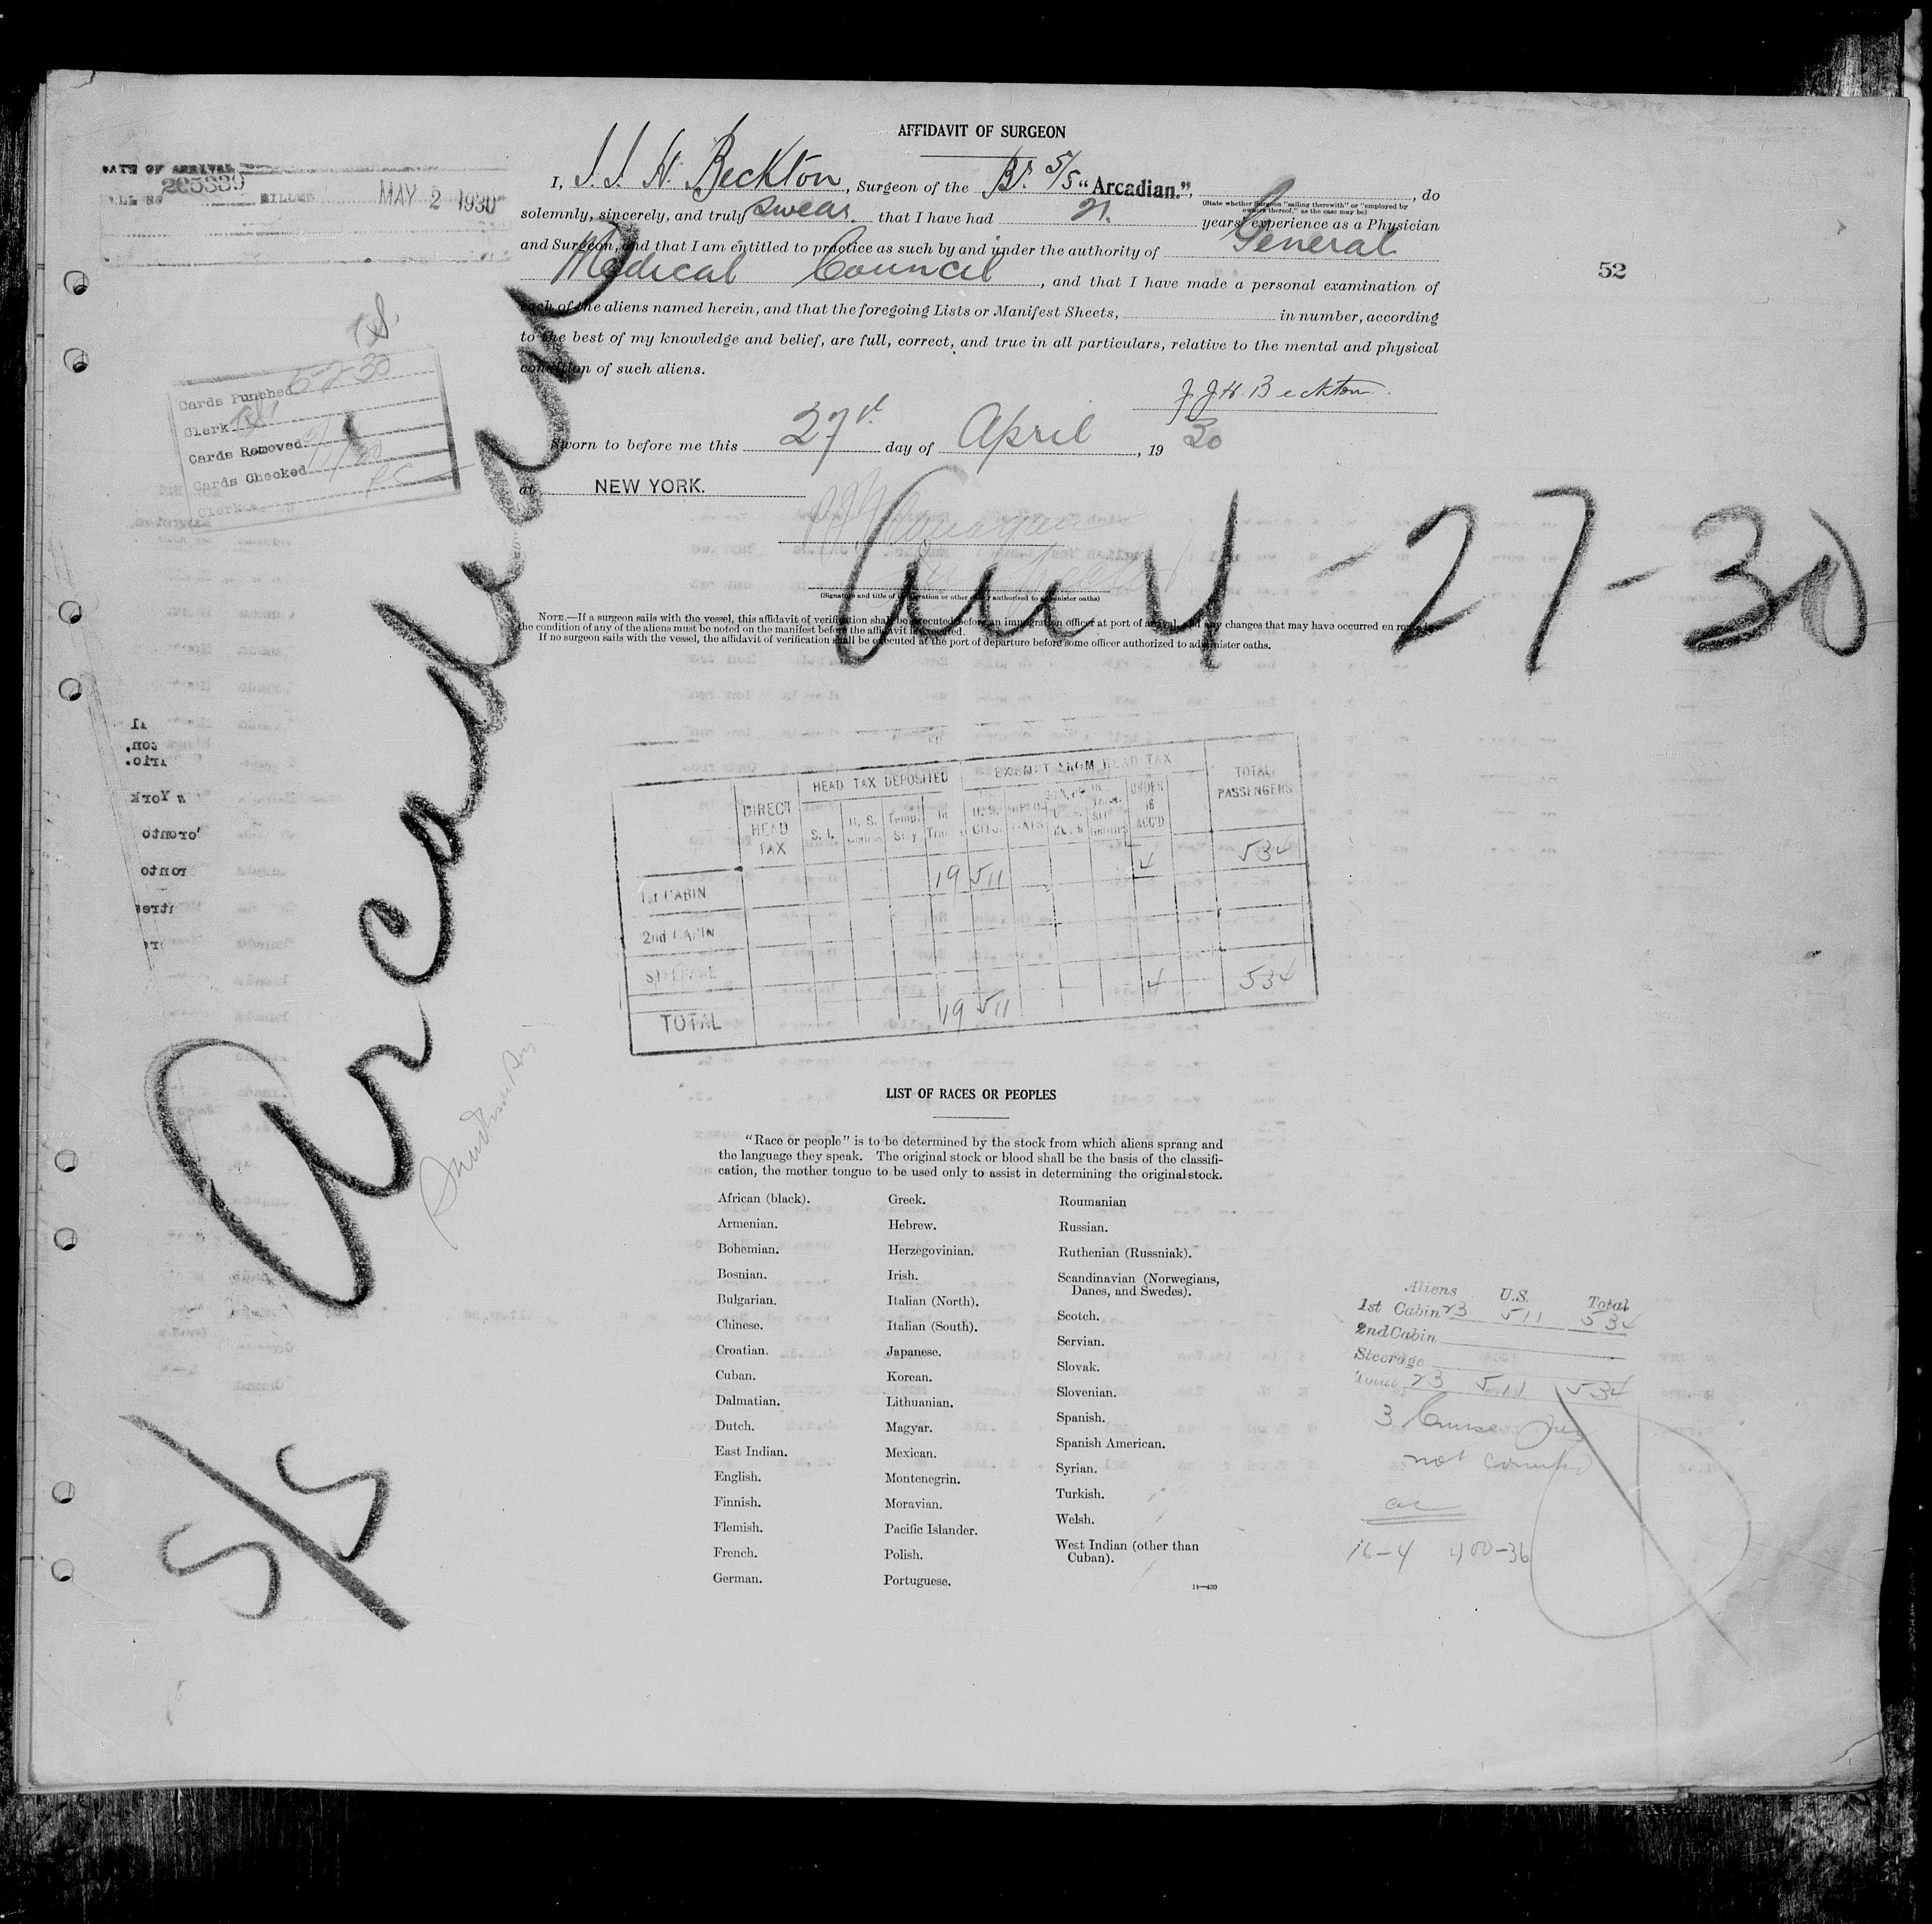 AFFIDAVIT OF SURGEON
DATE OF ARRIVAL
205339
MAY 2 1930
I, J. J. H. Beckton, Surgeon of the Br. S/S "Arcadian.", do
(State whether Surgeon "sailing therewith" or "employed by
owners thereof," as the case may be)
solemnly, sincerely, and truly swear. that I have had 21. years' experience as a Physician
and Surgeon, and that I am entitled to practice as such by and under the authority of General
Medical Council, and that I have made a personal examination of
each of the aliens named herein, and that the foregoing Lists or Manifest Sheets, in number, according
to the best of my knowledge and belief, are full, correct, and true in all particulars, relative to the mental and physical
condition of such aliens.
J J H. Beckton.
Sworn to before me this 27th day of April, 1930
at NEW YORK.
52
Cards Punched 5-2-30
Clerk
Cards Removed
Cards Checked
Clerk
S/S Arcadian
Arr 4-27-30
(Signature and title of immigration or other officer authorized to administer oaths)
NOTE.—If a surgeon sails with the vessel, this affidavit of verification shall be executed before an immigration officer at port of arrival, and any changes that may have occurred en route in
the condition of any of the aliens must be noted on the manifest before the affidavit is executed.
If no surgeon sails with the vessel, the affidavit of verification shall be executed at the port of departure before some officer authorized to administer oaths.
HEAD TAX DEPOSITED EXEMPT FROM HEAD TAX
DIRECT HEAD TAX S. I. U. S. Temp. Stay In Trans. U.S. CITS. UNDER 16 ACC'D TOTAL PASSENGERS
1st CABIN 19 511 4 534
2nd CABIN
STEERAGE
TOTAL 19 511 4 534
LIST OF RACES OR PEOPLES
"Race or people" is to be determined by the stock from which aliens sprang and
the language they speak. The original stock or blood shall be the basis of the classifi-
cation, the mother tongue to be used only to assist in determining the original stock.
African (black).
Armenian.
Bohemian.
Bosnian.
Bulgarian.
Chinese.
Croatian.
Cuban.
Dalmatian.
Dutch.
East Indian.
English.
Finnish.
Flemish.
French.
German.
Greek.
Hebrew.
Herzegovinian.
Irish.
Italian (North).
Italian (South).
Japanese.
Korean.
Lithuanian.
Magyar.
Mexican.
Montenegrin.
Moravian.
Pacific Islander.
Polish.
Portuguese.
Roumanian
Russian.
Ruthenian (Russniak).
Scandinavian (Norwegians,
Danes, and Swedes).
Scotch.
Servian.
Slovak.
Slovenian.
Spanish.
Spanish American.
Syrian.
Turkish.
Welsh.
West Indian (other than
Cuban).
14—430
Aliens U.S. Total
1st Cabin 23 511 534
2nd Cabin
Steerage
Total 23 511 534
3 Cruise
not counted
16-4 400-36